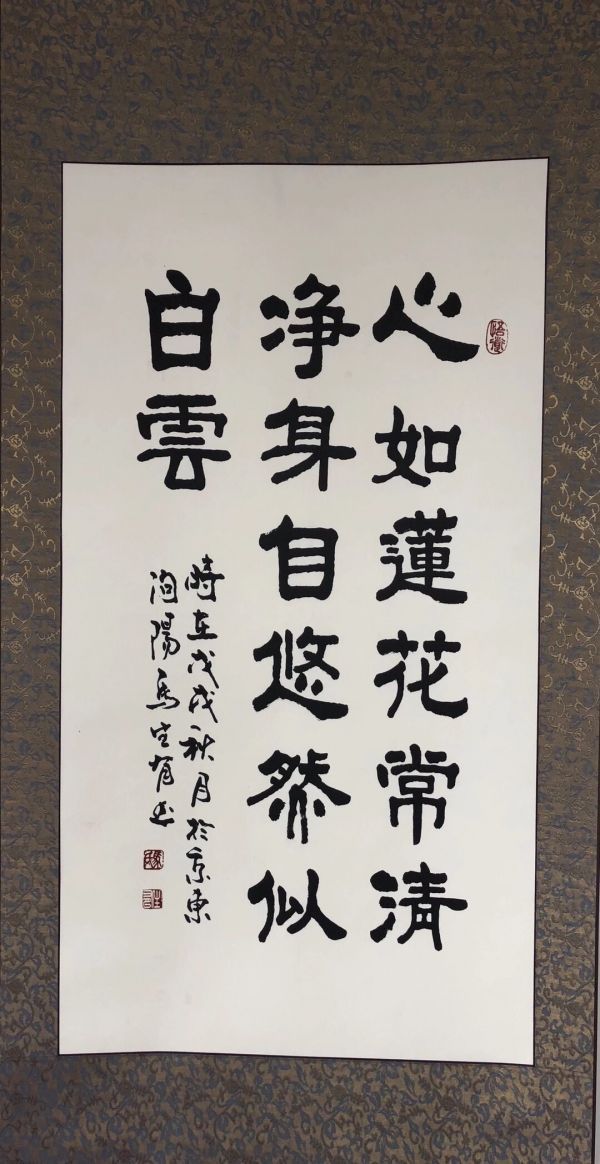 心如蓮花常清
净身自悠然似
白雲
時在戊戌秋月於京東
洵陽馬生有书